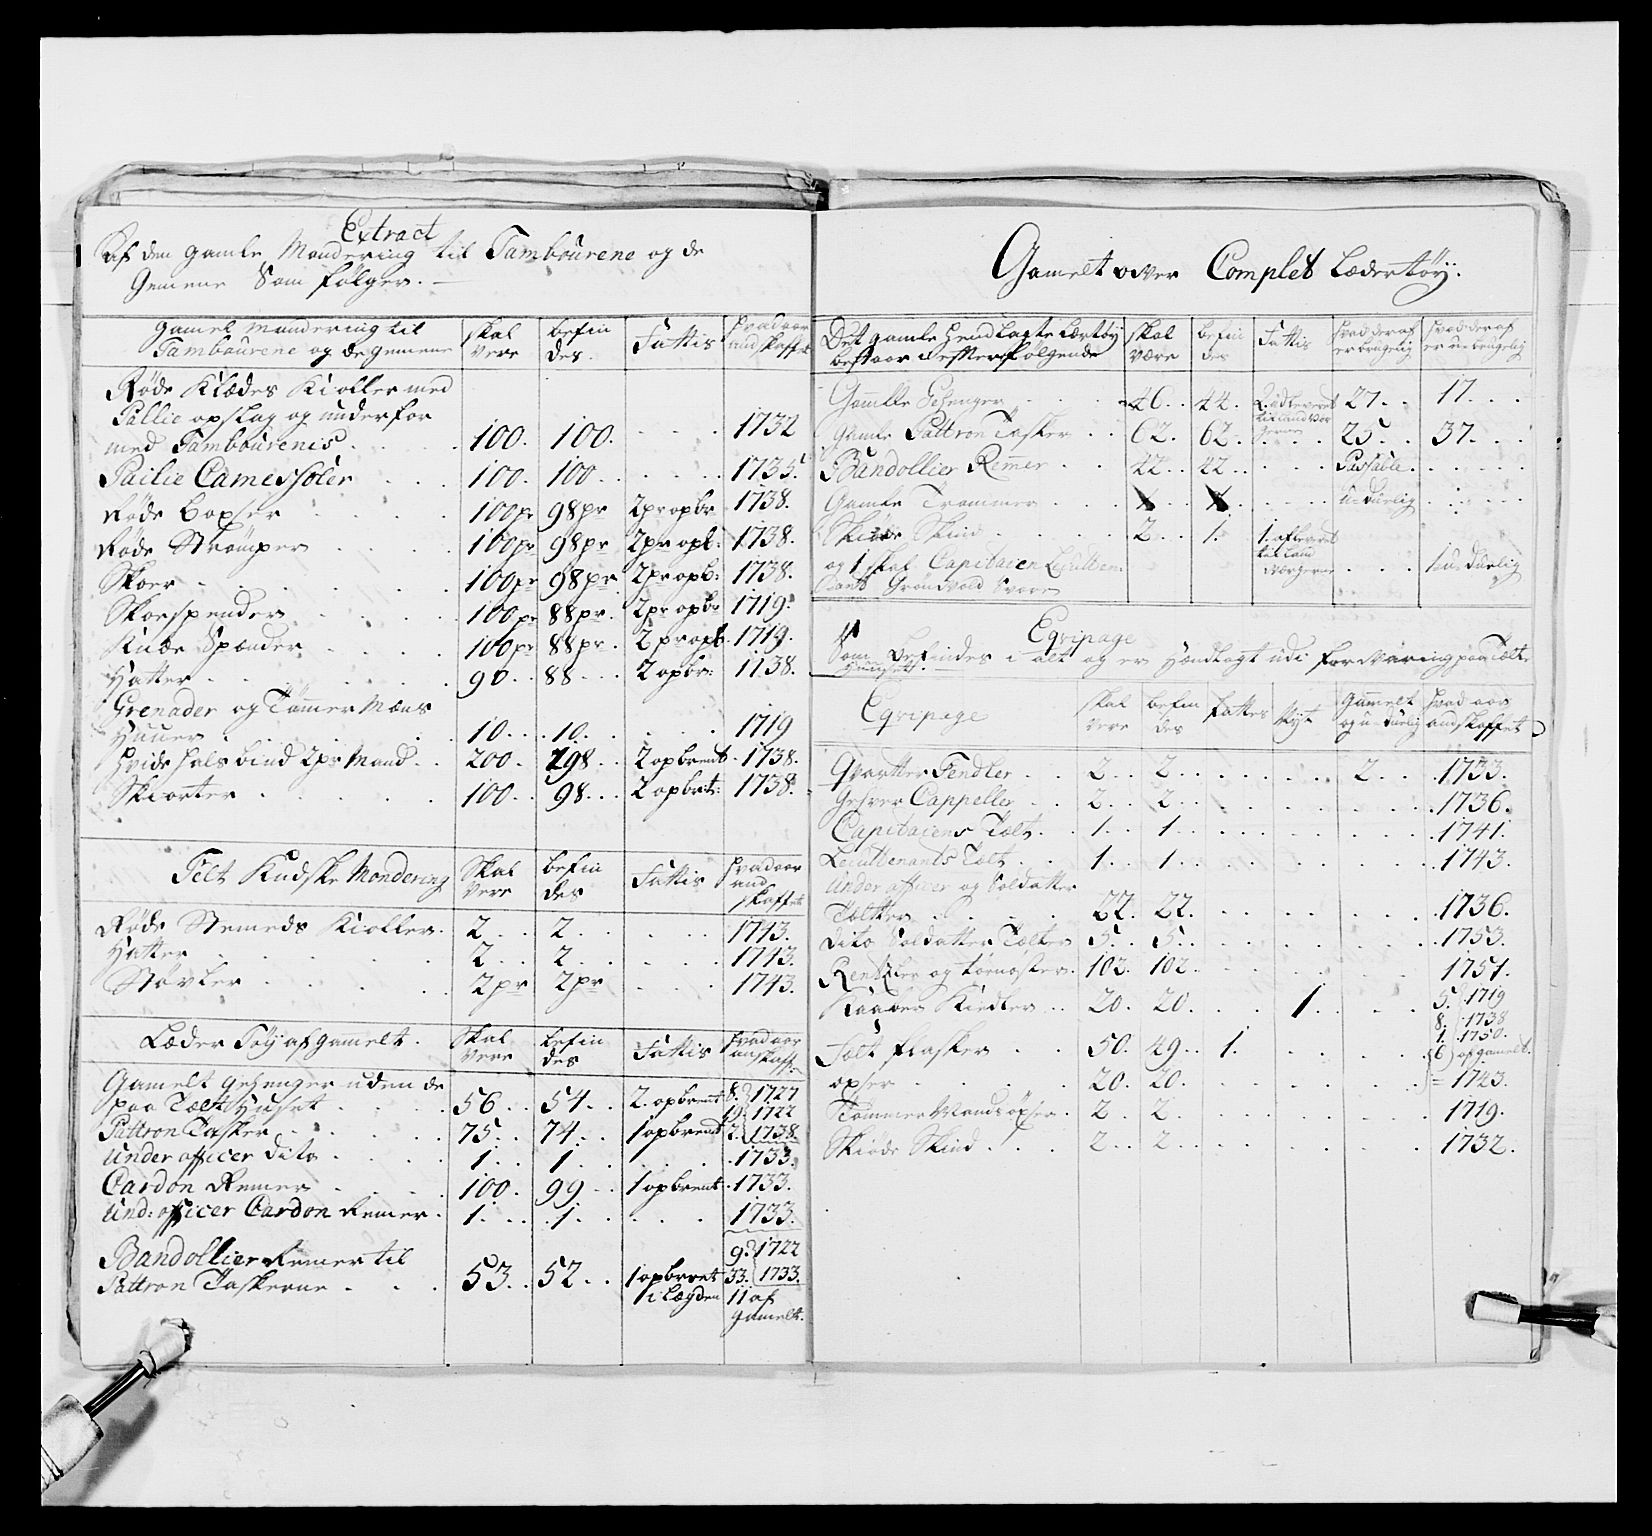 Extract
Af den gamle Mondering til Tambourene og de
Gemene Som følger.
Gamel Mondering til Tambourene og de gemene | skal vere | befindes | Fattis | hvad aar anskaffet
Røde Klædes Kioller med
Pallie opslag og underfor
med Tambourenis . . 100. 100. . . 1732
Pailie Camessoler . . 100. 100. . . 1735.
Røde Boxser . . 100pr 98pr 2pr opbr 1738.
Røde Strømper . . 100pr 98pr 2pr opb: 1738.
Skoer . . 100pr 98pr 2pr opb: 1738.
Skoespender . . 100pr 88pr. 2pr opbr 1719.
Knæe Spænder . . 100pr 88pr. 2pr opb. 1719.
Hatter . . 90. 88. . . 2 opbr: 1738.
Grenader og Tømmer Mæns
Huuer . . 10. . . 10. . . 1719
Hvide Halsbind 2pr Mand . . 200. 198. . 2 opbrent. 1738.
Skiorter . . 100. . 98. . . 2 opbrt: 1738.
Felt Kudske Mondering | Skal vere | befindes | Fattis | hvad aar anskaffet
Røde Stemeds Kioller. 2. . 2. . . 1743.
Hatter . . 2. . 2. . . 1743.
Støvler . . 2pr 2pr . . 1743.
Læder Tøy af gamelt. | Skal vere | befindes | Fattis | hvad aar anskaff
Gamelt Gehenger uden de
paa Tælt Huset . . 56. . 54. . 2. opbrent 8. 1727
19 1722
Pattron Tasker . . 75. . 74. . 1 opbrent 2. 1738.
Under officer dito . . 1. . 1. . . 1733.
Cardon Remer . . 100. 99. . 1 opbrent. 1733.
Und: officer Cardon Remer. 1. . . 1. . . 1733.
9. 1722
Bandollier Remer til
Pattron Taskerne . . 53. . 52. . 1 opbrent 33. 1733.
i Lægden 11 af
gamelt.
Gamelt over Complet Lædertøy.
Det gamle henlagte Lærtøy bestaar desMerefølgende | skal være | befindes | Fattis | hvad deraf er brugelig | hvad deraf er u-brugelig
Gamle Gehenger . . 46. . 44. 2 udleveret 27. . 17. . .
til Land Vær
gerne
Gamle Pattron Tasker . . 62. 62. . . . 25. . 37. . .
Bandollier Remer . . 22. . 22. . . . Passable. . . .
Gamle Trommer . . . . u-durlig . . .
Skiøde Skind . . 2. . 1. 1. afleveret
til Land
værgerne . . . 1 u-durlig
og 1 skal Capitaien Leiutten
ants Grønvold Svare
Eqvipage
Som Befindes i alt og er Handlagt udi forvaring paa Tælt
Huuset.
Eqvipage | skal vere | befindes | fattes | Nyt | Gammelt og u-durlig | hvad aar anskaffet
Qvartter Fendler . . 2. . 2. . . . 2. . 1733.
Gehver Cappeller . . 2. . 2. . . . 1736.
Capitaiens Tælt . . 1. . 1. . . . 1741.
Leiuttenants Tælt . . 1. . 1. . . . 1743.
Under officer og Soldatter
Tæltter . . 22. 22. . . . 1736.
Dito Soldatter Tælter 5. . 5. . . . 1753.
Rentzler og tørnøster. 103. 102. . . 1751.
Kaaber Kiedler . . 20. 20. . . 1. . . 5. 1719
8. 1738
1. 1750.
Felt flasker . . 50. 49. . 1. . . 6 af gamelt.
øxser . . 20. 20. . . . = 1743.
Tømmer Mands øxser. 2. . 2. . . . 1719.
Skiøde Skind . . 2. . 2. . . . 1732.